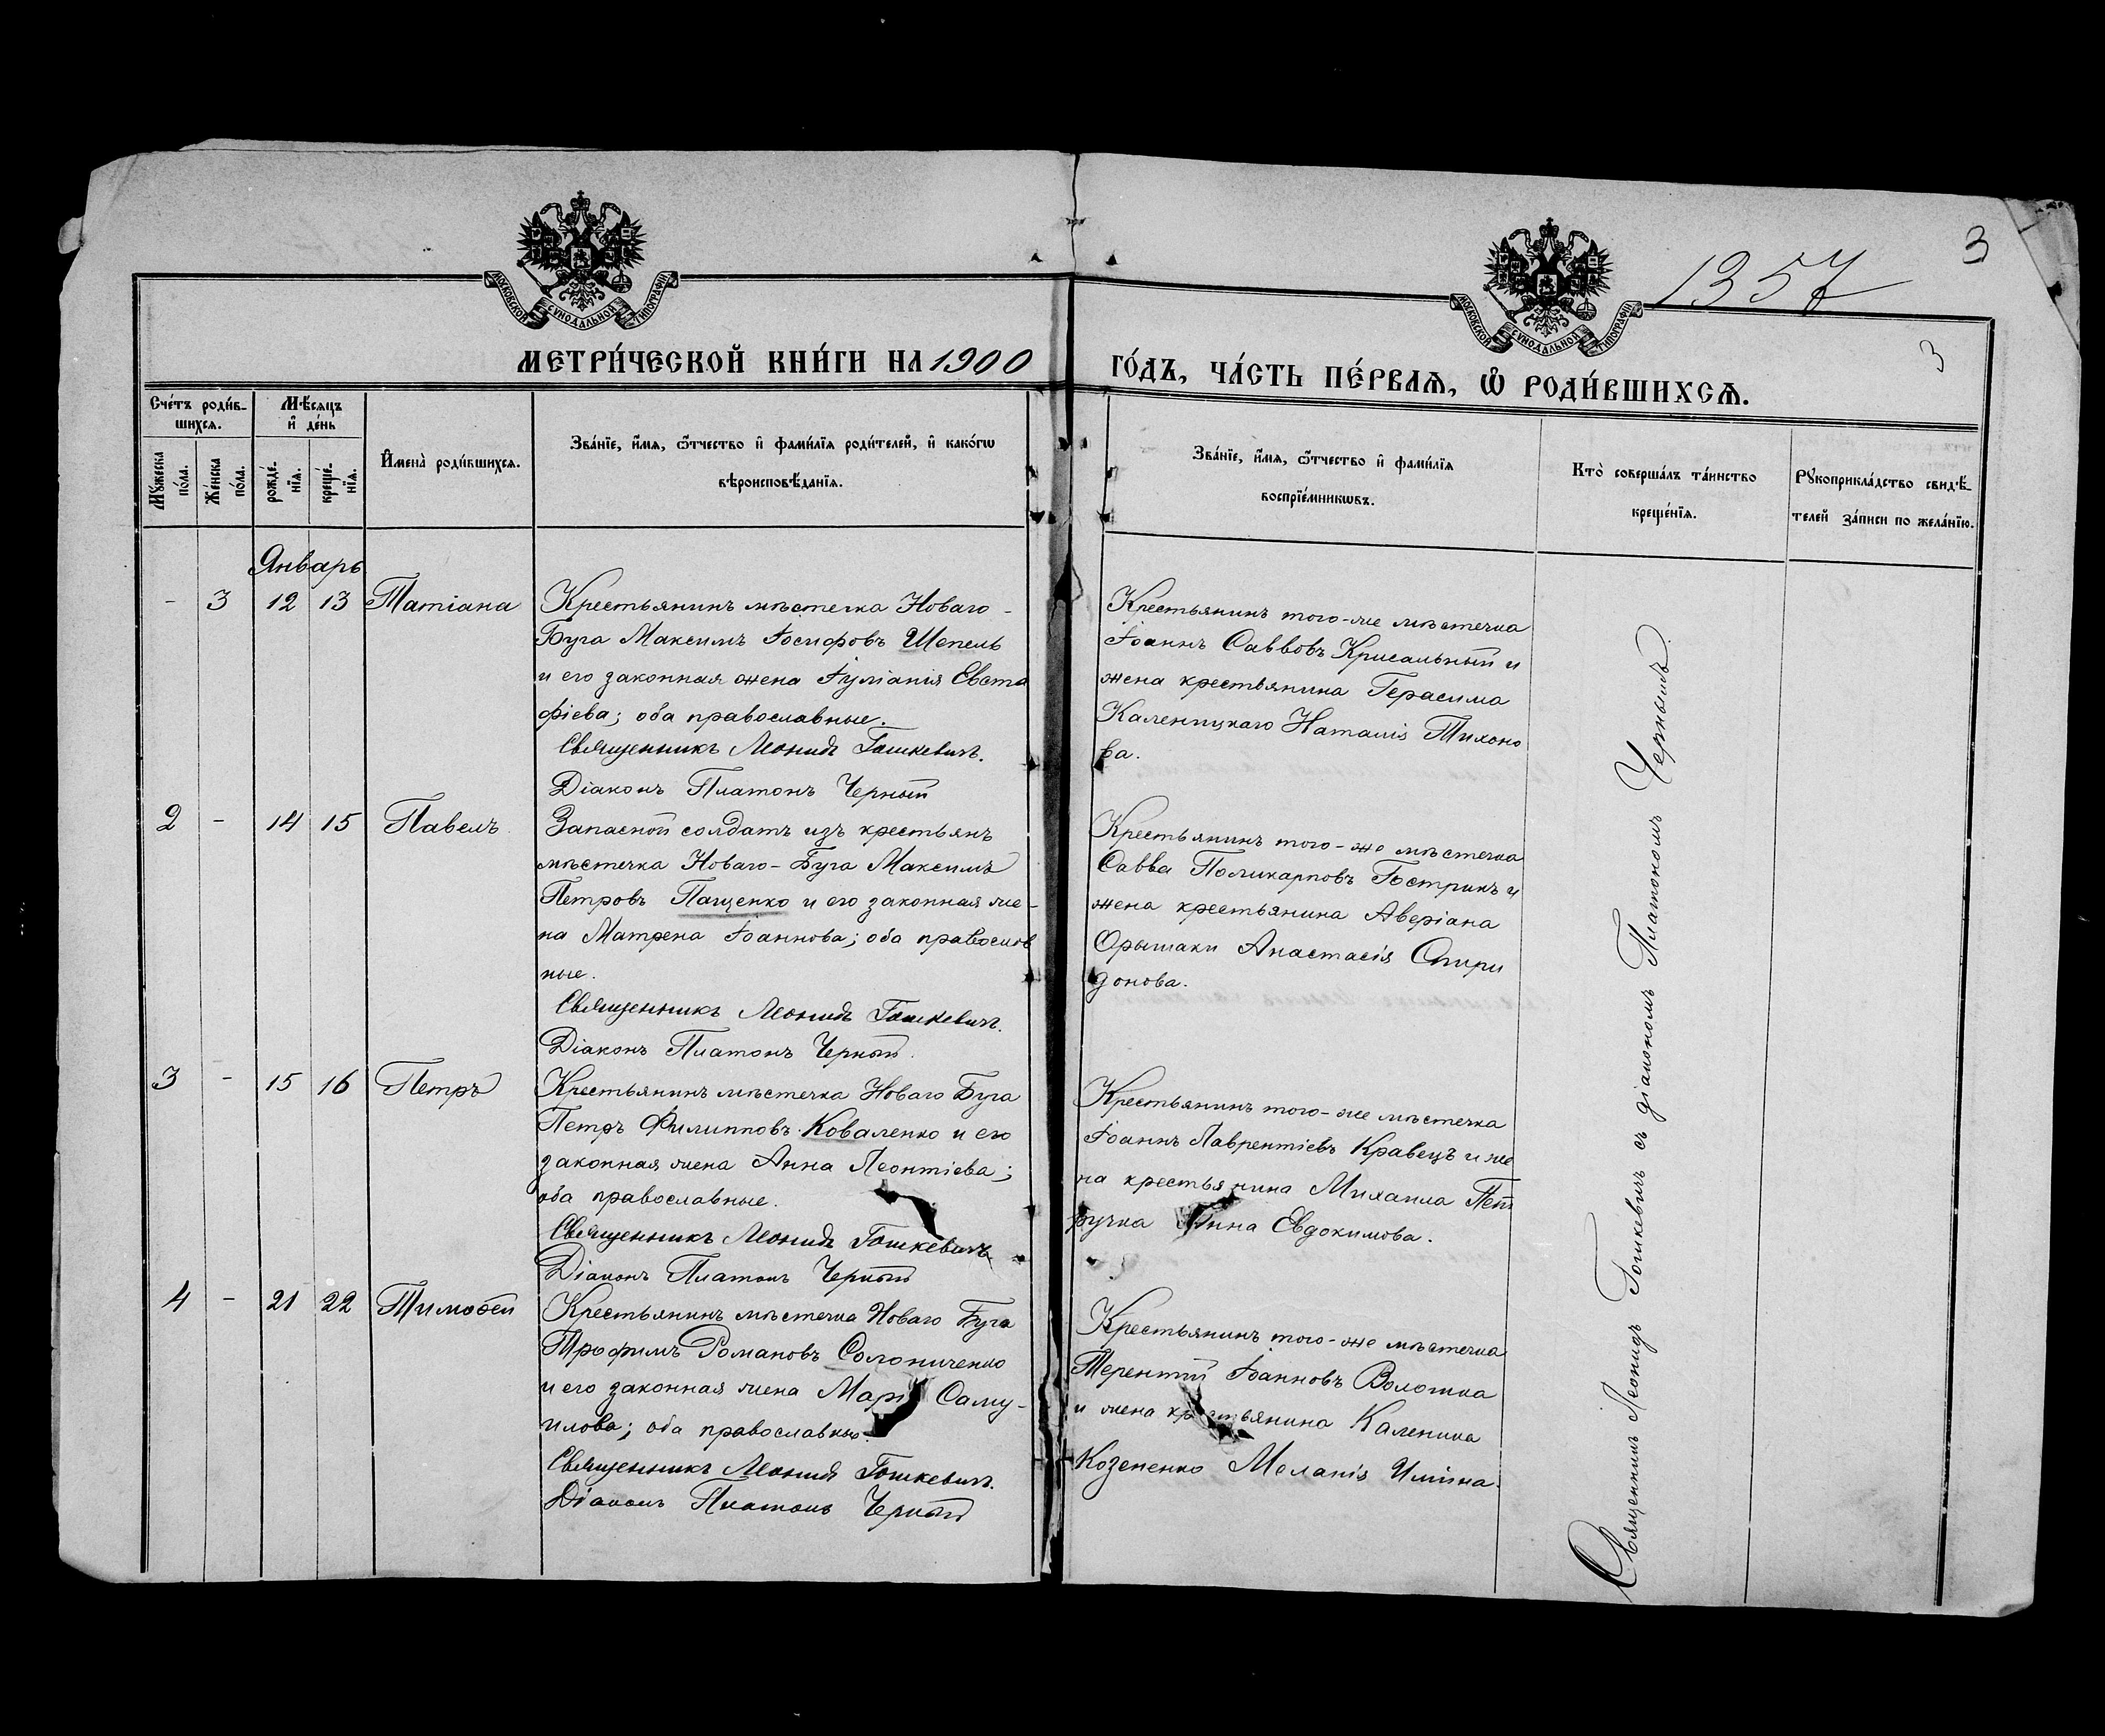 МОСКОВСКОЙ СѴНОДАЛЬНОЙ ТИПОГРАФІИ
МОСКОВСКОЙ СѴНОДАЛЬНОЙ ТИПОГРАФІИ
1357
3
3
МЕТРИ́ЧЕСКОЙ КНИ́ГИ НА 1900
ГО́ДЪ, ЧА́СТЬ ПЕ́РВАѦ, Ѽ РОДИ́ВШИХСѦ.
Сче́тъ роди́в-
шихсѧ.
Мѣ́сѧцъ
и҆ де́нь
Мꙋ́жеска
по́ла.
Же́нска
по́ла.
рожде́-
нїѧ.
креще́-
нїѧ.
И҆мена̀ роди́вшихсѧ.
Зва́нїе, и҆́мѧ, ѻ҆́тчество и҆ фами́лїѧ роди́телей, и҆ како́гѡ
вѣроисповѣ́данїѧ.
Зва́нїе, и҆́мѧ, ѻ҆́тчество и҆ фами́лїѧ
воспрїе́мникѡвъ.
Кто̀ соверша́лъ та́инство
креще́нїѧ.
Рꙋкоприкла́дство свидѣ́-
телей за́писи по жела́нїю.
Январь
- 3 12 13 Татіана
Крестьянинъ мѣстечка Новаго-
Буга Максимъ Іосифовъ Шепель
и его законная жена Іуліанія Евста
фіева; оба православные.
Священникъ Леонидъ Гошкевичъ.
Діаконъ Платонъ Черный
Крестьянинъ того-же мѣстечка
Іоаннъ Савовъ Крисальный и
жена крестьянина Герасима
Каленицкаго Наталія Тихоно
ва.
2 - 14 15 Павелъ
Запасной солдатъ изъ крестьянъ
мѣстечка Новаго-Буга Максимъ
Петровъ Пащенко и его законная же-
на Матрена Іоаннова; оба православ
ные.
Священникъ Леонидъ Гошкевичъ.
Діаконъ Платонъ Черный.
Крестьянинъ того-же мѣстечка
Савва Поликарповъ Бострикъ и
жена крестьянина Аверіана
Орышаки Анастасія Спири
донова.
3 - 15 16 Петръ
Крестьянинъ мѣстечка Новаго Буга
Петръ Филипповъ Коваленко и его
законная жена Анна Леонтіева;
оба православные.
Священникъ Леонидъ Гошкевичъ
Діаконъ Платонъ Черный
Крестьянинъ того-же мѣстечка
Іоаннъ Лаврентіевъ Кравецъ и же
на крестьянина Михаила Пет
ручка Анна Евдокимова.
4 - 21 22 Тимоѳей
Крестьянинъ мѣстечка Новаго Буга
Трофимъ Романовъ Солониченко
и его законная жена Марія Саму-
илова; оба православные.
Священникъ Леонидъ Гошкевичъ.
Діаконъ Платонъ Черный
Крестьянинъ того-же мѣстечка
Терентій Іоанновъ Волошка
и жена крестьянина Каленика
Козененко Меланія Ильина.
Священникъ Леонидъ Гошкевичъ съ діакономъ Платономъ Чернымъ.